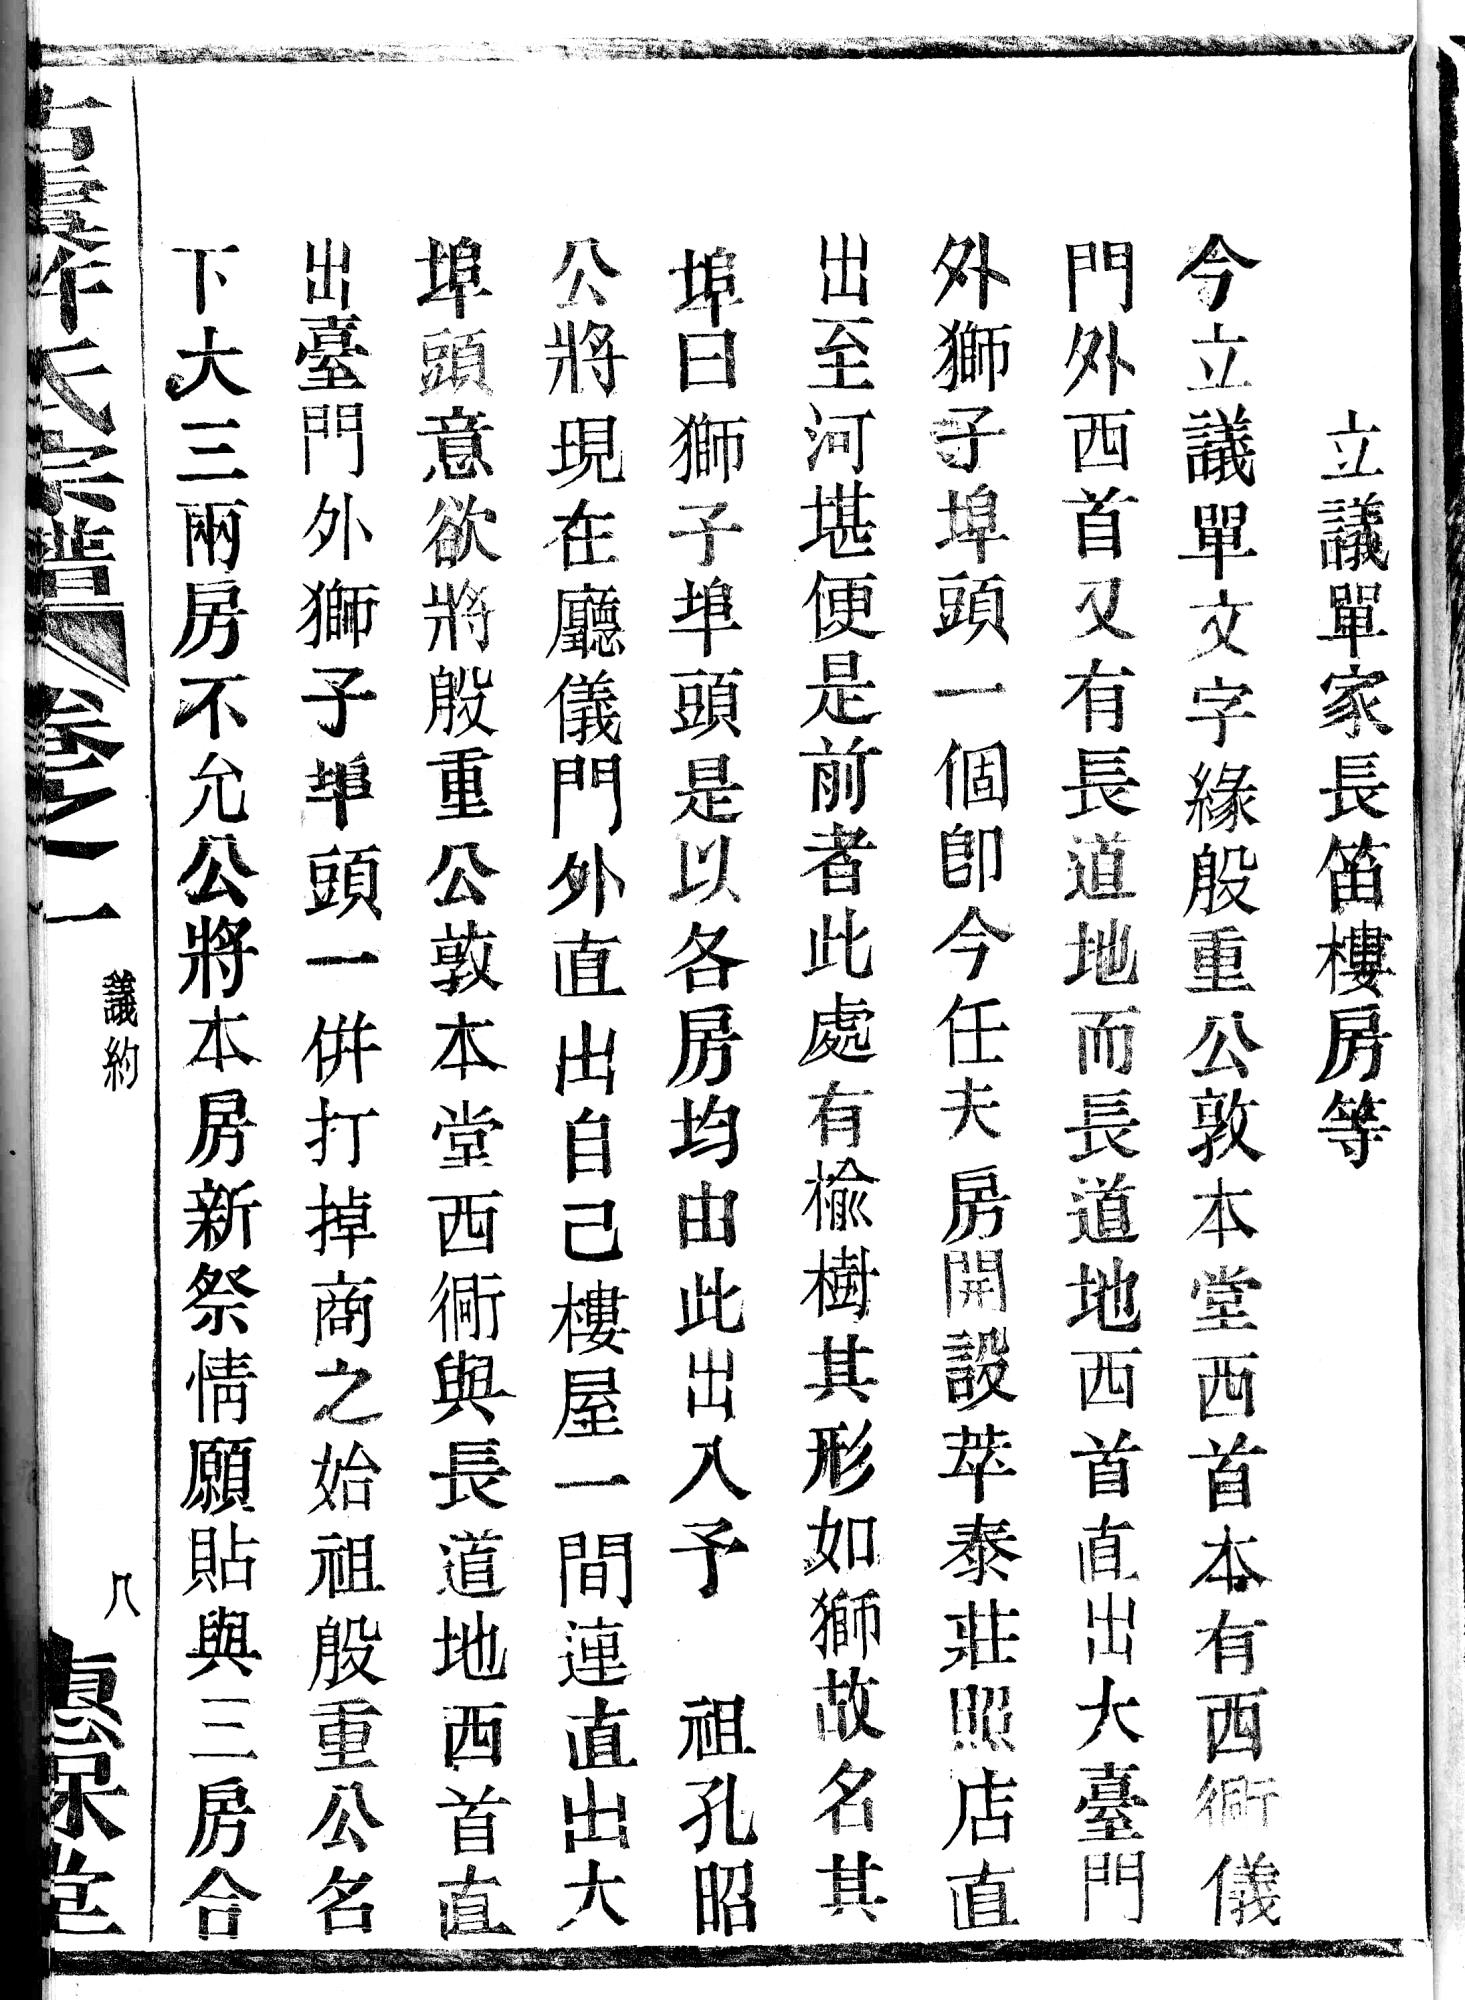 立議單家長笛樓房等
今立議單文字緣殷重公敦本堂西首本有西衖儀
門外西首又有長道地而長道地西首直出大臺門
外獅子埠頭一個卽今任夫房開設萃泰莊照店直
出至河堪便是前者此處有榆樹其形如獅故名其
埠曰獅子埠頭是以各房均由此出入予　祖孔昭
公將現在廳儀門外直出自己樓屋一間連直出大
埠頭意欲將殷重公敦本堂西衖與長道地西首直
出臺門外獅子埠頭一倂打掉商之始祖殷重公名
下大三兩房不允公將本房新祭情願貼與三房合
氏宗譜　卷之一　議約　八